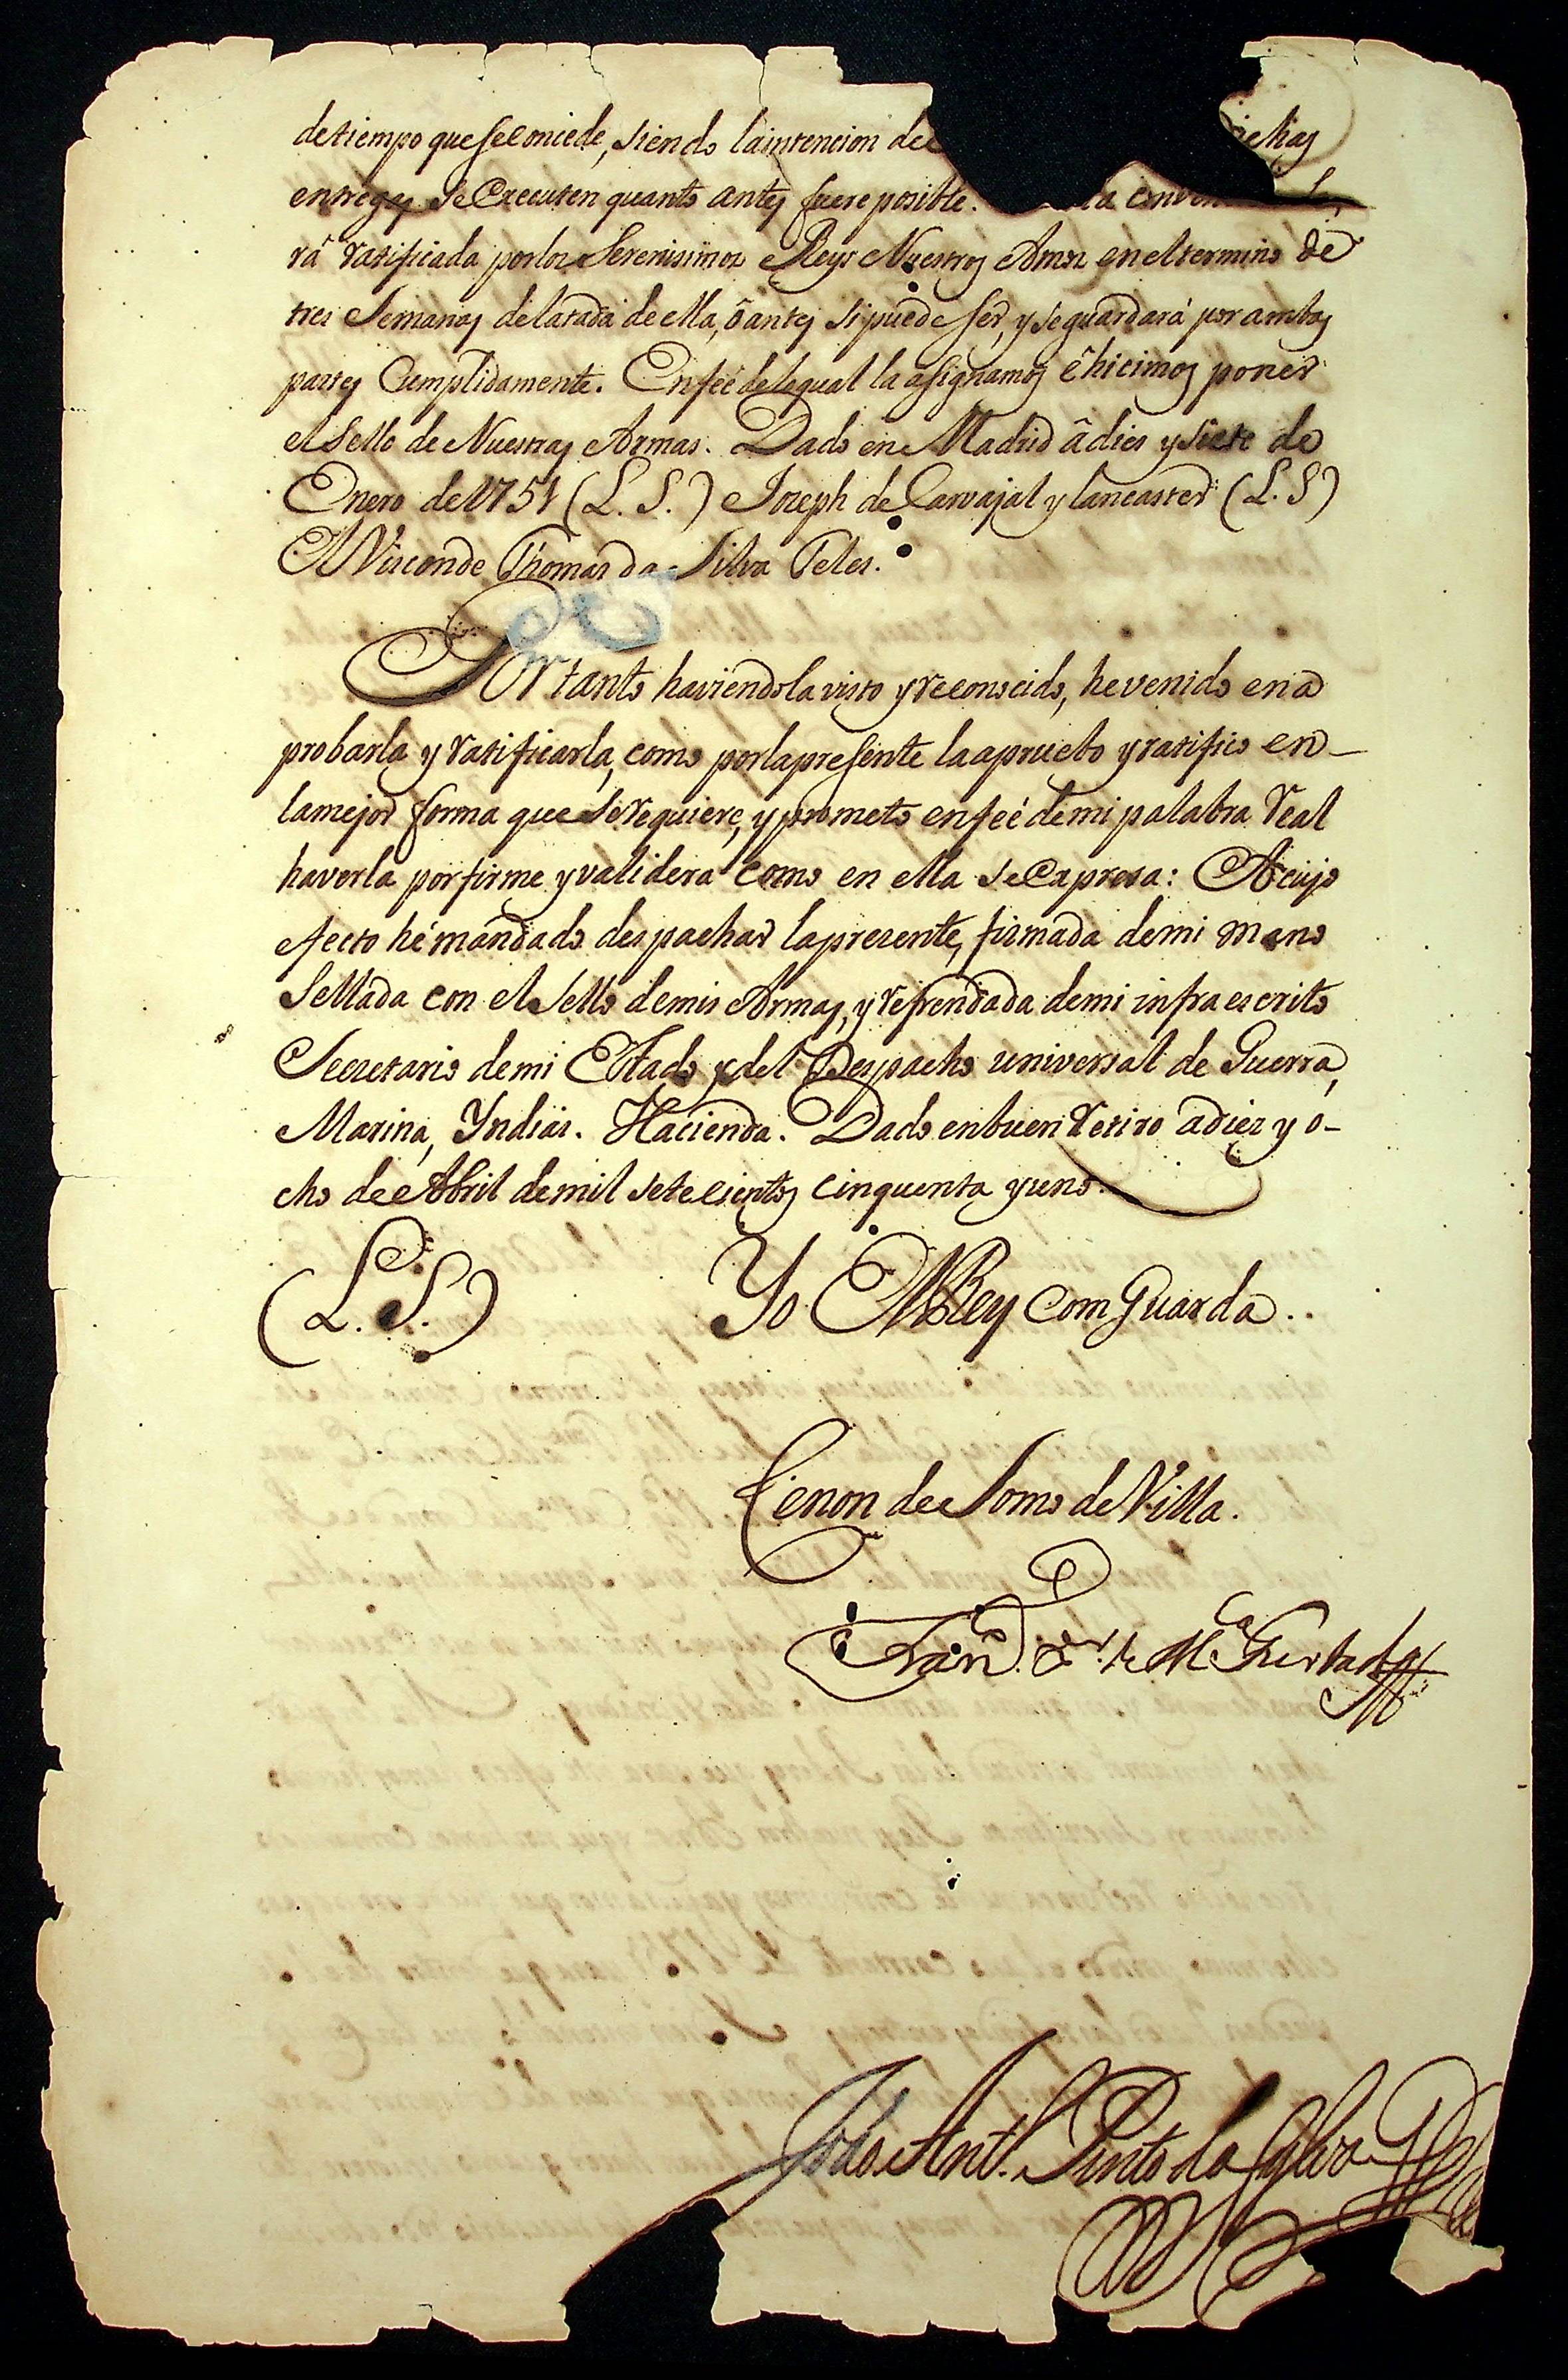 de tiempo que se concede, siendo la intencion de chas
entregas se executen quanto antes fuere posible. ta conven se
râ ratificada por los Serenisimos Reys Nuestros Amos en el termino de
tres Semanas de la tada de ella, ô antes si puede ser, y se guardará por ambas
partes Cumplidamente. En feé de lo qual la asignamos ê hicimos poner
el Sello de Nuestras Armas. Dado en Madrid â dies y siete de
Enero de 1751 (L. S.) Joseph de Carvajal y lancaster (L. S)
El Visconde Thomas da Silva Teles.
Por tanto haviendola visto y reconocido, he venido en a
probarla y ratificarla, como por la presente la apruebo y ratifico en
la mejor forma que se requiere, y prometo en feé de mi palabra Real
haverla por firme y validera como en ella se Expresa: A cuyo
efecto hé mandado despachar la presente, firmada de mi mano
Sellada con el Sello de mis Armas, y refrendada de mi infra escrito
Secretario de mi Estado y del Despacho universal de Guerra,
Marina, Yndias. Hacienda. Dado en buen Retiro a diez y o-
cho de Abril de mil setecientos cinquenta y uno.
(L. S.) Yo El Rey Com Guarda..
Cenon de Somo de Villa.
Fran.co X.er de M.ca Furtado
João Ant.o Pinto da Silva